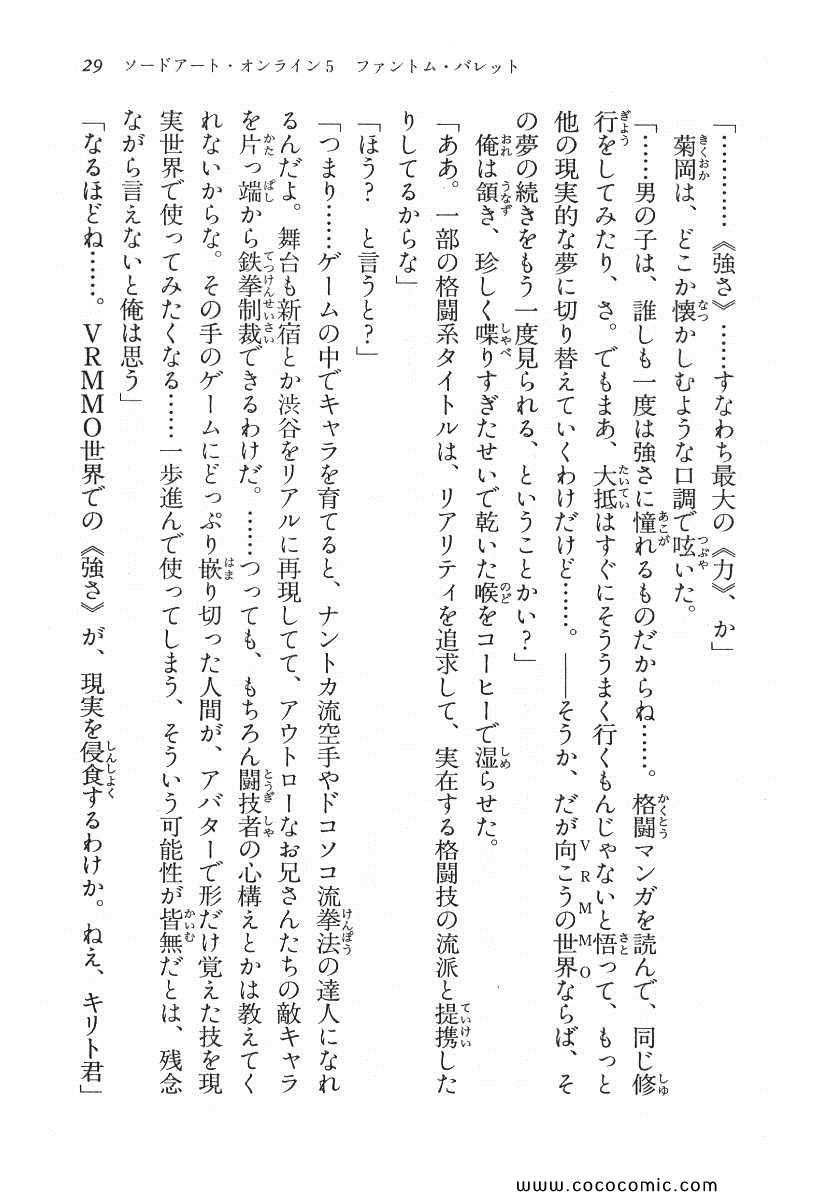 29 ソードアート・オンライン5 ファントム・バレット
「…………《強さ》……すなわち最大の《力》、か」
菊岡は、どこか懐かしむような口調で呟いた。
「……男の子は、誰しも一度は強さに憧れるものだからね……。格闘マンガを読んで、同じ修
行をしてみたり、さ。でもまあ、大抵はすぐにそううまく行くもんじゃないと悟って、もっと
他の現実的な夢に切り替えていくわけだけど……。――そうか、だが向こうの世界ならば、そ
の夢の続きをもう一度見られる、ということかい?」
俺は頷き、珍しく喋りすぎたせいで乾いた喉をコーヒーで湿らせた。
「ああ。一部の格闘系タイトルは、リアリティを追求して、実在する格闘技の流派と提携した
りしてるからな」
「ほう? と言うと?」
「つまり……ゲームの中でキャラを育てると、ナントカ流空手やドコソコ流拳法の達人になれ
るんだよ。舞台も新宿とか渋谷をリアルに再現してて、アウトローなお兄さんたちの敵キャラ
を片っ端から鉄拳制裁できるわけだ。……つっても、もちろん闘技者の心構えとかは教えてく
れないからな。その手のゲームにどっぷり嵌り切った人間が、アバターで形だけ覚えた技を現
実世界で使ってみたくなる……一歩進んで使ってしまう、そういう可能性が皆無だとは、残念
ながら言えないと俺は思う」
「なるほどね……。VRMMO世界での《強さ》が、現実を侵食するわけか。ねえ、キリト君」
www.cococomic.com